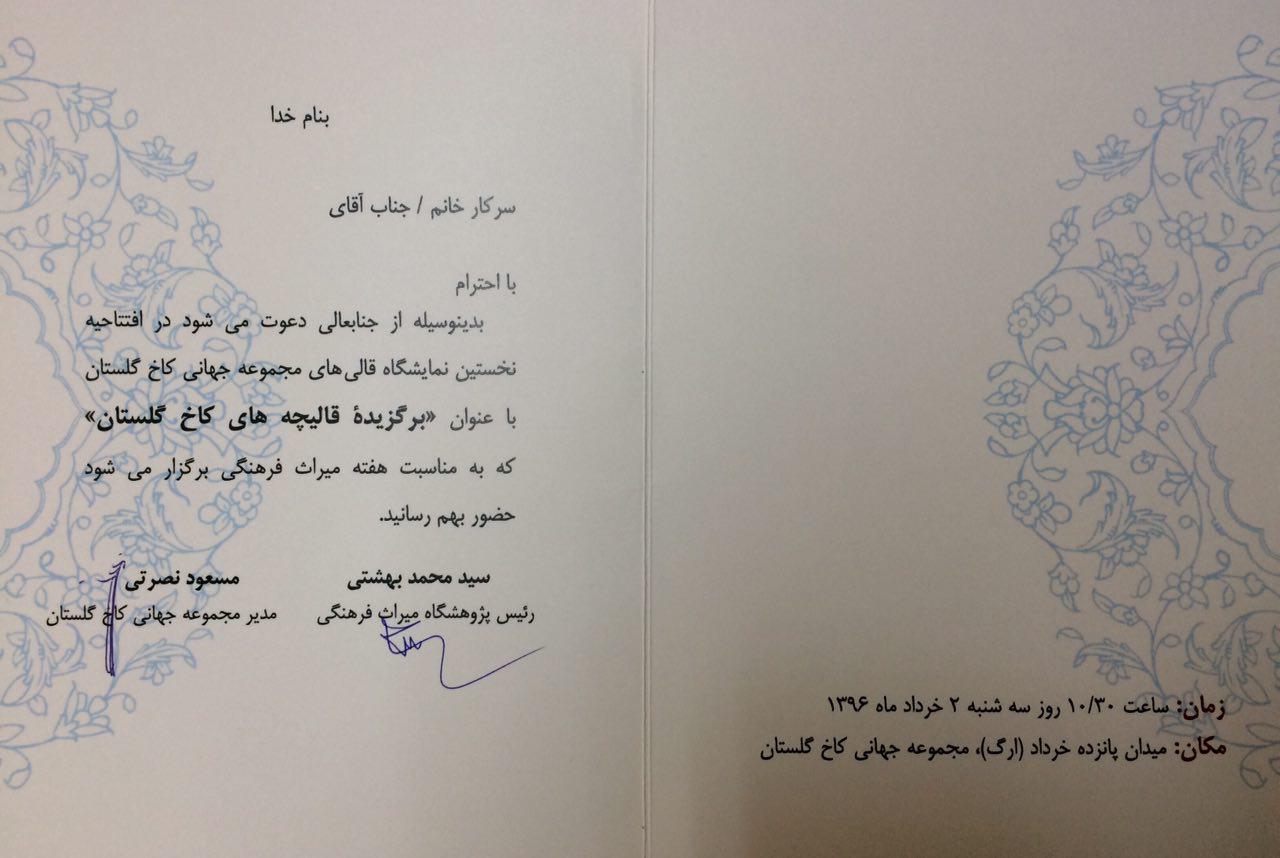 بنام خدا
سرکار خانم / جناب آقای
با احترام
بدینوسیله از جنابعالی دعوت می شود در افتتاحیه
نخستین نمایشگاه قالی‌های مجموعه جهانی کاخ گلستان
با عنوان «برگزیدهٔ قالیچه های کاخ گلستان»
که به مناسبت هفته میراث فرهنگی برگزار می شود
حضور بهم رسانید.
سید محمد بهشتی
رئیس پژوهشگاه میراث فرهنگی
مسعود نصرتی
مدیر مجموعه جهانی کاخ گلستان
زمان: ساعت ۱۰/۳۰ روز سه شنبه ۲ خرداد ماه ۱۳۹۶
مکان: میدان پانزده خرداد (ارگ)، مجموعه جهانی کاخ گلستان